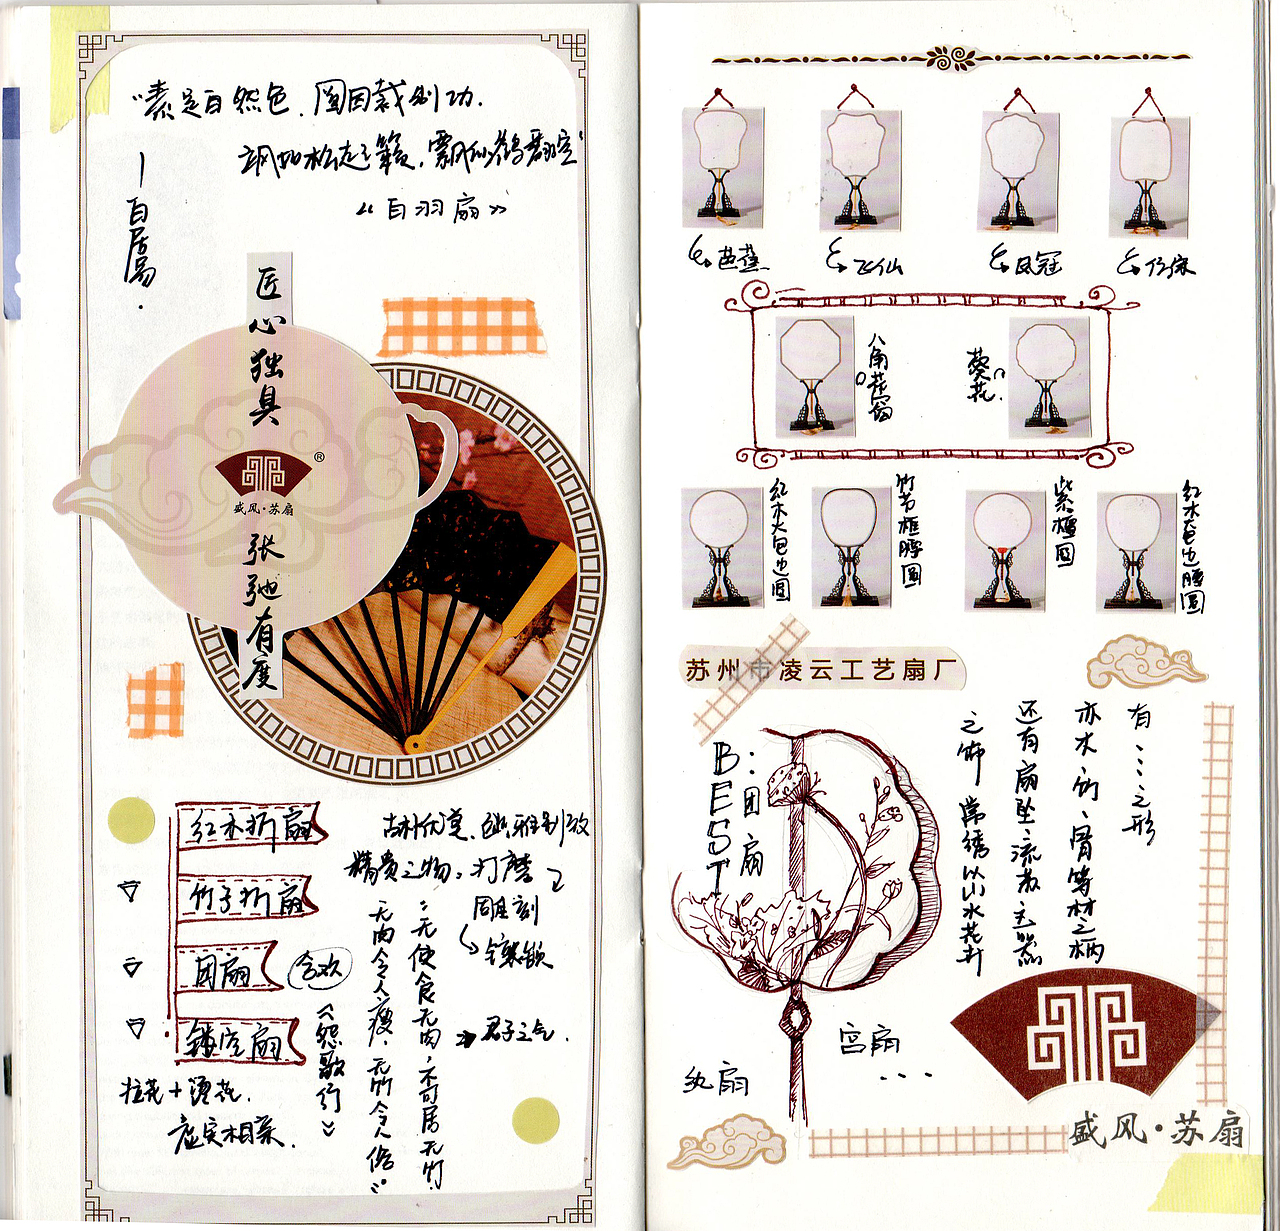 “素是自然色,圆因裁制功.
飒如松起籁,飘似鹤翻空”
《白羽扇》
— 白居易.
匠心独具
®
盛风·苏扇
张弛有度
红木折扇
竹子折扇
团扇
合欢
镂空扇
拉花+烫花.
虚实相乘.
《怨歌行》
古朴优美、幽雅别致
精贵之物。打磨
雕刻
镶嵌
君子之气.
“无使食无肉,不可居无竹.
无肉令人瘦,无竹令人俗”
芭蕉
飞仙
凤冠
八角花窗
葵花
红木大包边圆
竹节框腰圆
紫檀圆
红木大包边腰圆
苏州市凌云工艺扇厂
BEST
:团扇
有……之形
亦木、竹、骨等材之柄
还有扇坠、流苏、玉器
之饰 常绣以山水花卉
宫扇
...
纨扇
盛风·苏扇